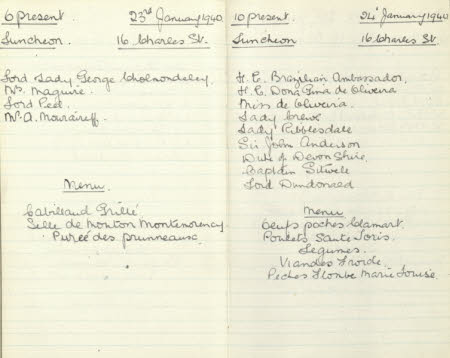 6 present. 23rd January 1940
Luncheon. 16 Charles St.
Lord Lady George Cholmondeley.
Mrs. Maguire.
Lord Peel.
Mr. A.
Menu.
Cabillaud Grillé
Selle de Monton Montmorency
Purée des prunneaux.
10 present. 24 January 1940
Luncheon 16 Charles St.
H. E. Brazilian Ambassador.
H. E. Dona de Oliveira
Miss de Oliveira.
Lady Crewe
Lady Ribblesdale
Sir John Anderson
Duke of Devonshire.
Captain Sitwell
Lord Dundonald
Menu
Oeufs poches Clamart.
Poulets Saute
Legumes.
Viandes Froide.
Peches Flambe Marie Louise.